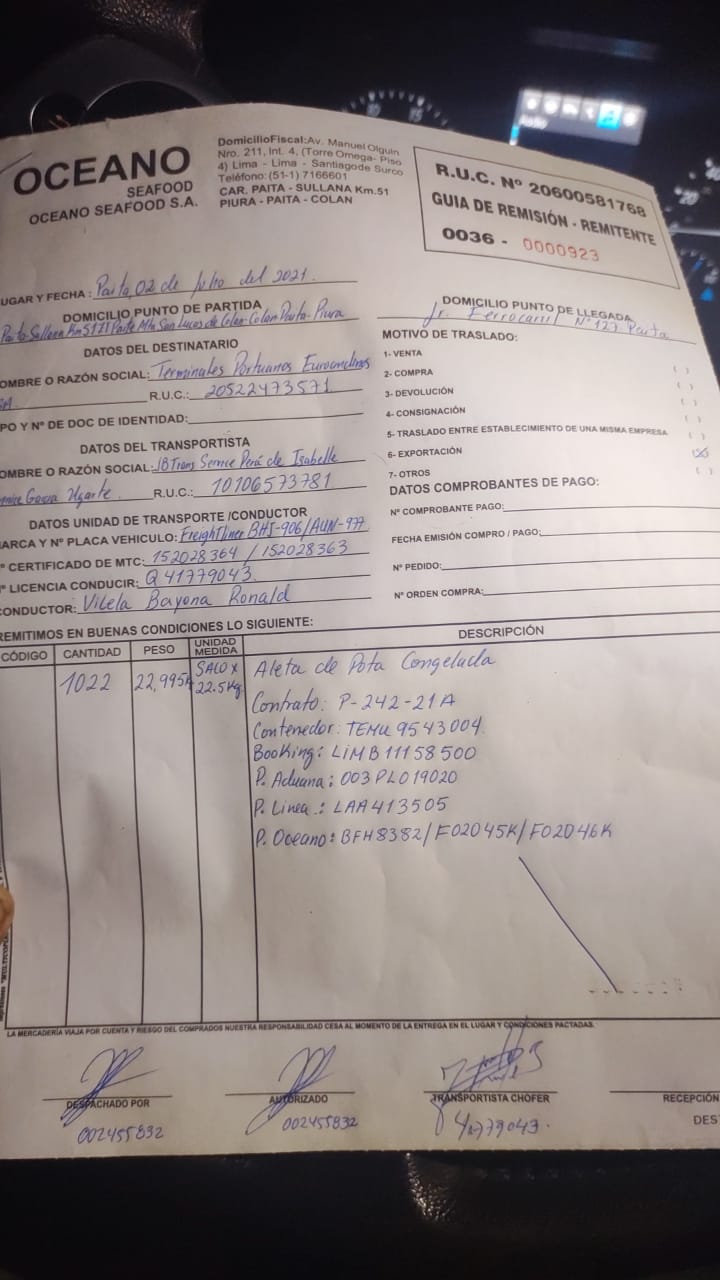 OCEANO
SEAFOOD
OCEANO SEAFOOD S.A.
DomicilioFiscal:Av. Manuel Olguin
Nro. 211, Int. 4, (Torre Omega- Piso
4) Lima - Lima - Santiagode Surco
Teléfono:(51-1) 7166601
CAR. PAITA - SULLANA Km.51
PIURA - PAITA - COLAN
R.U.C. Nº 20600581768
GUIA DE REMISIÓN - REMITENTE
0036 - 0000923
UGAR Y FECHA : Paita, 02 de Julio del 2021.
DOMICILIO PUNTO DE PARTIDA
Paita-Sullana Km 51 San Lucas de Colan-Colan-Paita-Piura
DOMICILIO PUNTO DE LLEGADA
Jr. Ferrocarril Nº 127 Paita
DATOS DEL DESTINATARIO
OMBRE O RAZÓN SOCIAL: Terminales Portuarios Euroandinos
SA. R.U.C.: 20522473571
PO Y Nº DE DOC DE IDENTIDAD:
DATOS DEL TRANSPORTISTA
OMBRE O RAZÓN SOCIAL: JB Trans Service Perú de Isabelle
Ugarte. R.U.C.: 10106573781
DATOS UNIDAD DE TRANSPORTE /CONDUCTOR
ARCA Y Nº PLACA VEHICULO: Freightliner BHI-906/AUN-977
º CERTIFICADO DE MTC: 152028364 / 152028363
º LICENCIA CONDUCIR: Q 41779043.
CONDUCTOR: Vilela Bayona Ronald
MOTIVO DE TRASLADO:
1- VENTA ( )
2- COMPRA ( )
3- DEVOLUCIÓN ( )
4- CONSIGNACIÓN ( )
5- TRASLADO ENTRE ESTABLECIMIENTO DE UNA MISMA EMPRESA ( )
6- EXPORTACIÓN (X)
7- OTROS ( )
DATOS COMPROBANTES DE PAGO:
Nº COMPROBANTE PAGO:
FECHA EMISIÓN COMPRO / PAGO:
Nº PEDIDO:
Nº ORDEN COMPRA:
REMITIMOS EN BUENAS CONDICIONES LO SIGUIENTE:
CÓDIGO CANTIDAD PESO UNIDAD MEDIDA DESCRIPCIÓN
1022 22,995K SACO x 22.5Kg Aleta de Pota Congelada
Contrato: P-242-21A
Contenedor: TEMU 9543004.
Booking: LIMB11158500
P. Aduana: 003PL019020
P. Linea.: LAA413505
P. Oceano: BFH8382/F02045K/F02046K
LA MERCADERÍA VIAJA POR CUENTA Y RIESGO DEL COMPRADOS NUESTRA RESPONSABILIDAD CESA AL MOMENTO DE LA ENTREGA EN EL LUGAR Y CONDICIONES PACTADAS.
DESPACHADO POR
002455832
AUTORIZADO
002455832
TRANSPORTISTA CHOFER
41779043.
RECEPCIÓN
DES